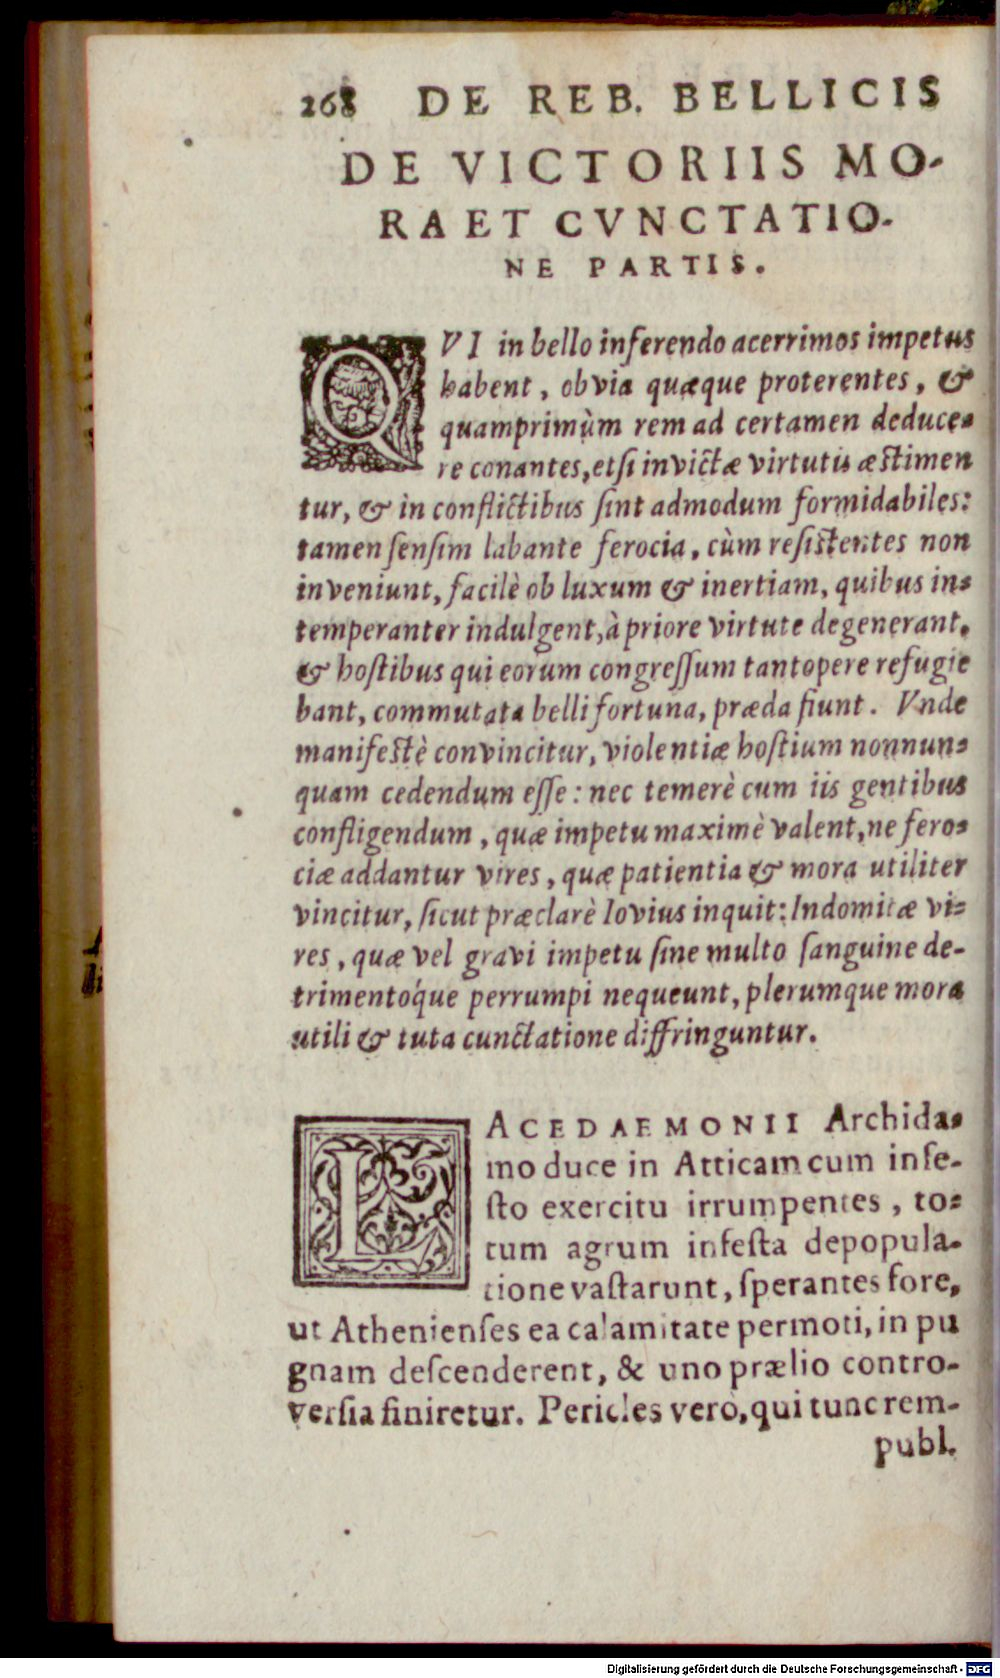 268 DE REB. BELLICIS
DE VICTORIIS MO-
RA ET CVNCTATIO-
NE PARTIS.
QVI in bello inferendo acerrimos impetus
habent, obvia quæque proterentes, &
quamprimùm rem ad certamen deduce-
re conantes, etſi invictæ virtutis æstimen
tur, & in conflictibus ſint admodum formidabiles:
tamen ſenſim labante ferocia, cùm reſistentes non
inveniunt, facilè ob luxum & inertiam, quibus in-
temperanter indulgent, à priore virtute degenerant,
& hoſtibus qui eorum congreſſum tantopere refugie
bant, commutata belli fortuna, præda fiunt. Vnde
manifestè convincitur, violentiæ hoſtium nonnun-
quam cedendum eſſe: nec temerè cum iis gentibus
confligendum, quæ impetu maximè valent, ne fero-
ciæ addantur vires, quæ patientia & mora utiliter
vincitur, ſicut præclarè Iovius inquit: Indomitæ vi-
res, quæ vel gravi impetu ſine multo ſanguine de-
trimentóque perrumpi nequeunt, plerumque mora
utili & tuta cunctatione diffringuntur.
LACEDAEMONII Archida-
mo duce in Atticam cum infe-
ſto exercitu irrumpentes, to-
tum agrum infeſta depopula-
tione vaſtarunt, ſperantes fore,
ut Athenienſes ea calamitate permoti, in pu
gnam deſcenderent, & uno prælio contro-
verſia finiretur. Pericles verò, qui tunc rem-
publ.
Digitalisierung gefördert durch die Deutsche Forschungsgemeinschaft - DFG